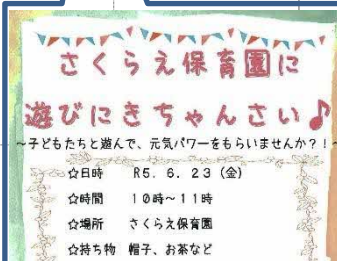 さくらえ保育園に
遊びにきちゃんさい♪
~子どもたちと遊んで、元気パワーをもらいませんか?!~
☆日時 R5. 6. 23 (金)
☆時間 10時~11時
☆場所 さくらえ保育園
☆持ち物 帽子、お茶など